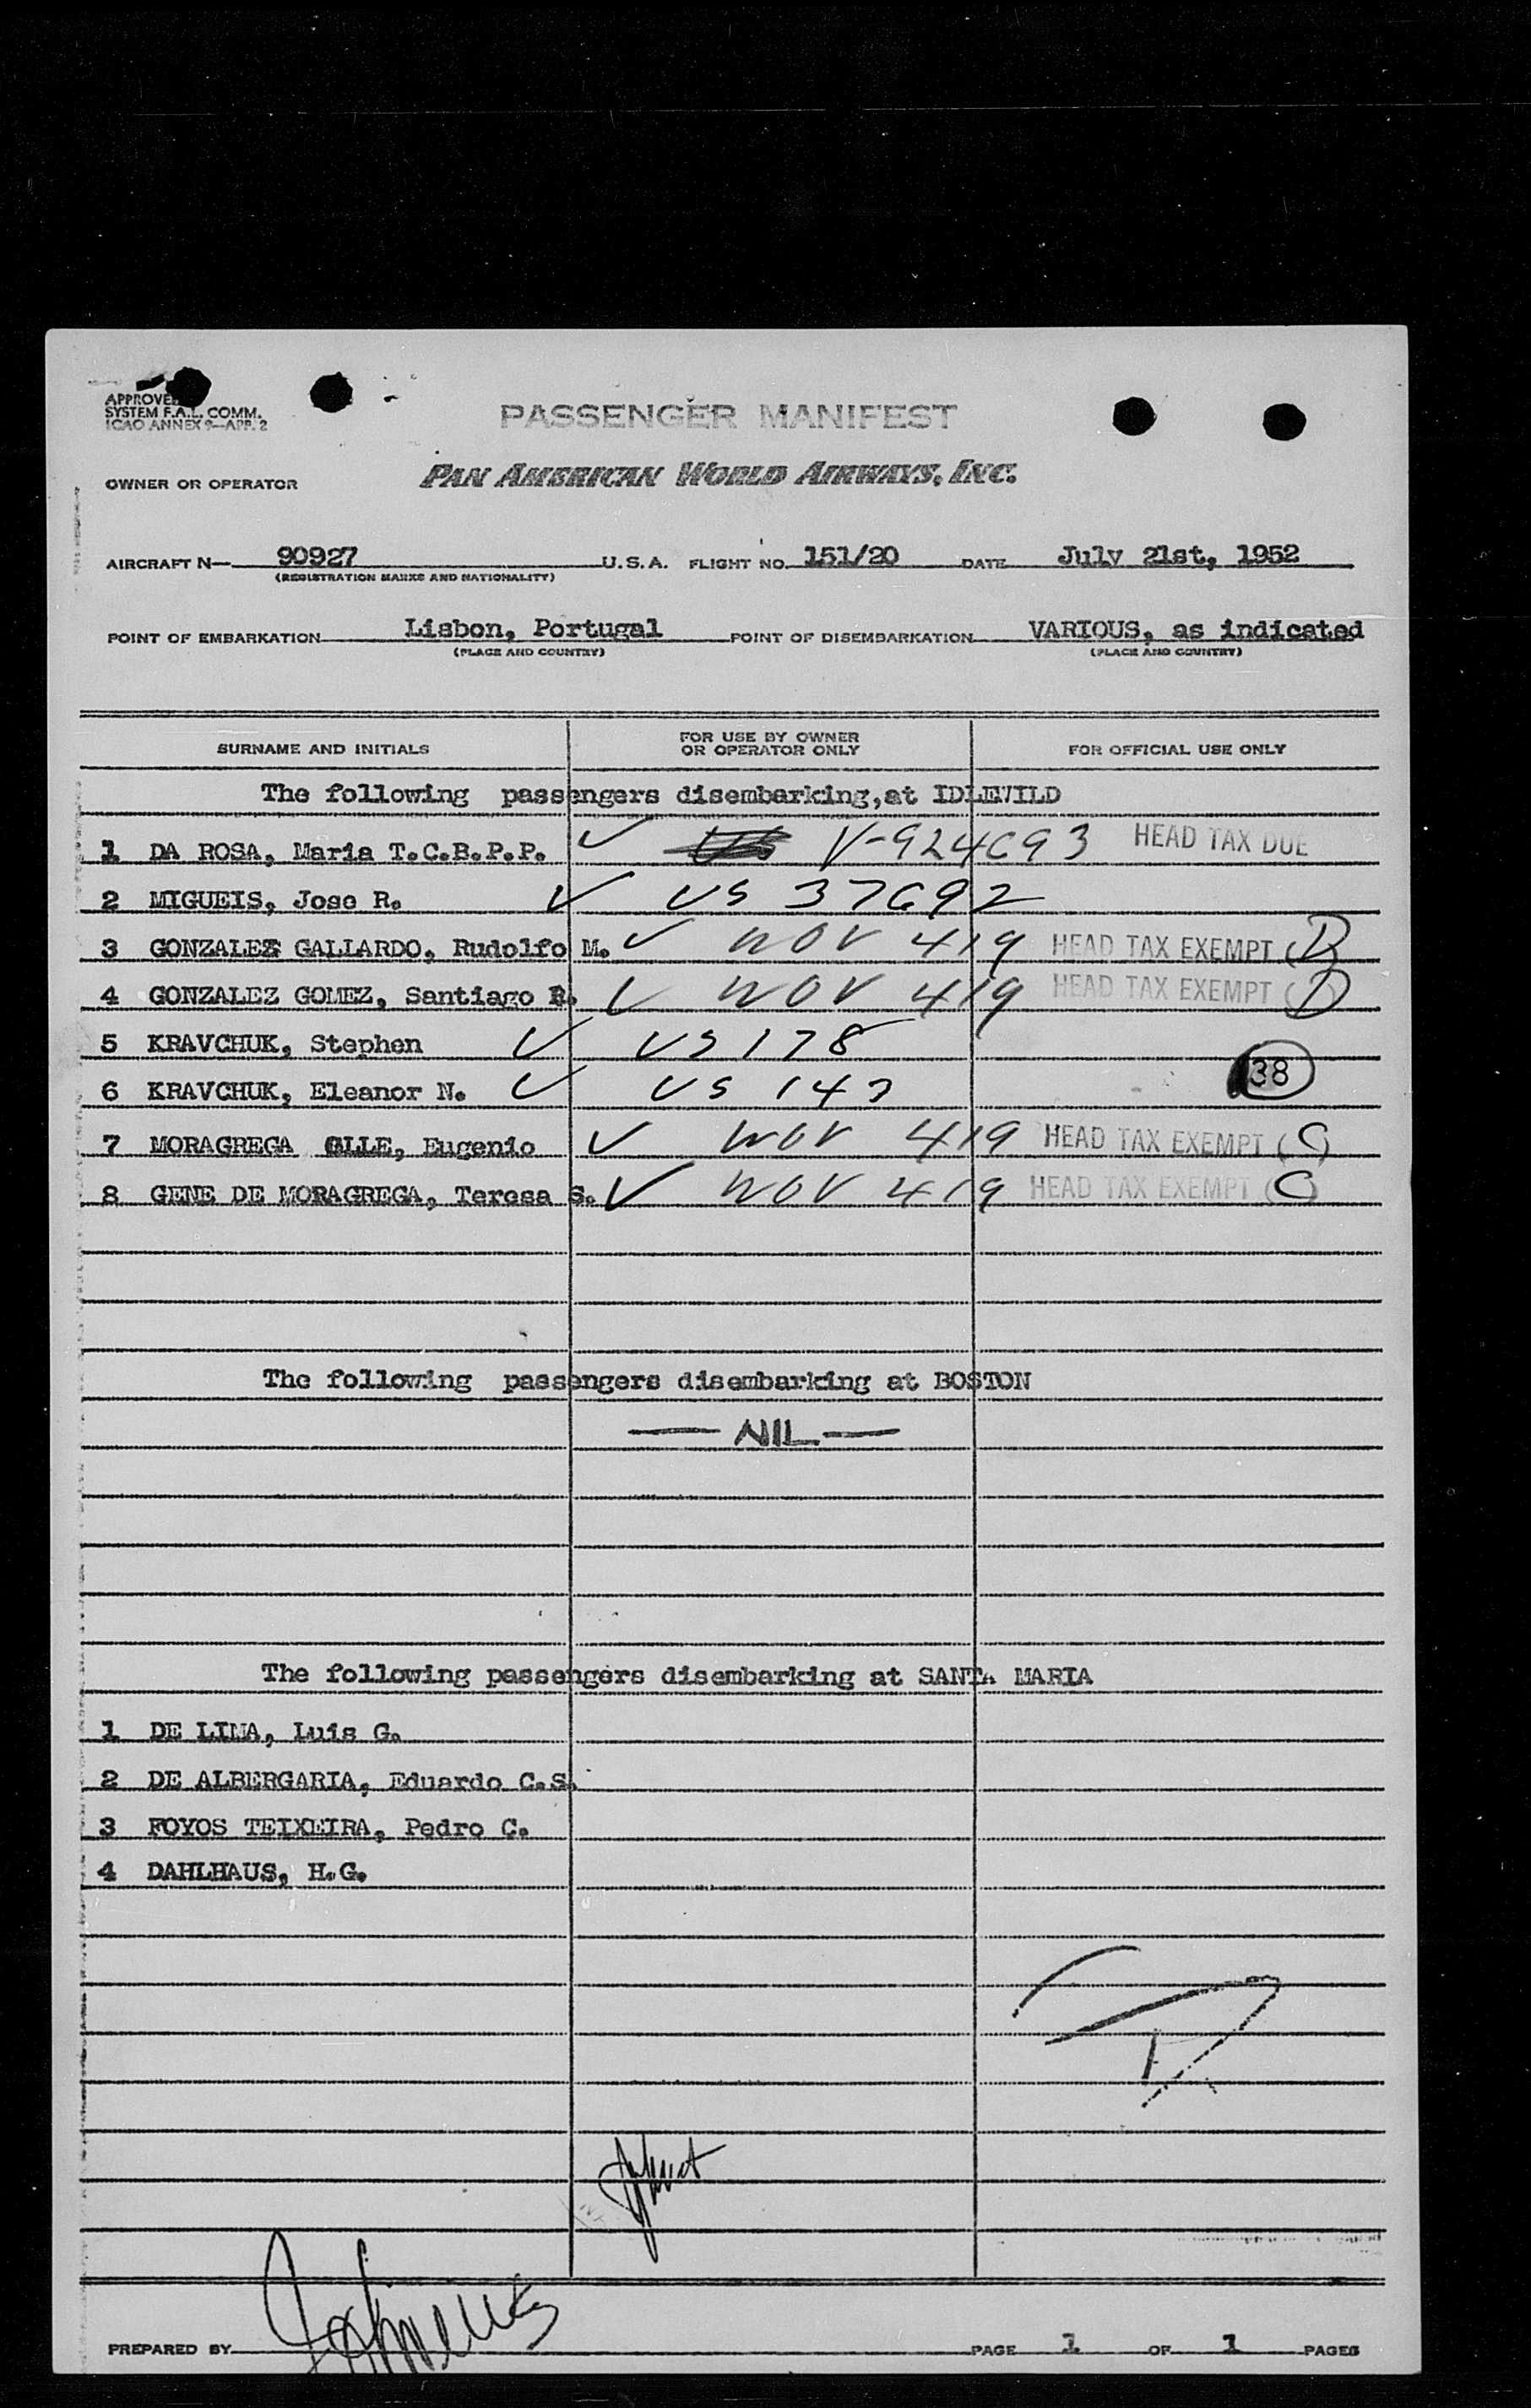 APPROVED
SYSTEM F.A.L. COMM.
ICAO ANNEX 9—APP. 2
PASSENGER MANIFEST
OWNER OR OPERATOR PAN AMERICAN WORLD AIRWAYS, INC.
AIRCRAFT N— 90927 U.S.A. FLIGHT NO. 151/20 DATE July 21st, 1952
(REGISTRATION MARKS AND NATIONALITY)
POINT OF EMBARKATION Lisbon, Portugal POINT OF DISEMBARKATION VARIOUS, as indicated
(PLACE AND COUNTRY) (PLACE AND COUNTRY)
SURNAME AND INITIALS FOR USE BY OWNER OR OPERATOR ONLY FOR OFFICIAL USE ONLY
The following passengers disembarking,at IDLEWILD
1 DA ROSA, Maria T.C.B.P.P. ✓ V-924693 HEAD TAX DUE
2 MIGUEIS, Jose R. ✓ US 37692
3 GONZALEZ GALLARDO, Rudolfo M. ✓ WOV 419 HEAD TAX EXEMPT (D)
4 GONZALEZ GOMEZ, Santiago R. ✓ WOV 419 HEAD TAX EXEMPT (D)
5 KRAVCHUK, Stephen ✓ US 178
6 KRAVCHUK, Eleanor N. ✓ US 147 38
7 MORAGREGA OLLE, Eugenio ✓ WOV 419 HEAD TAX EXEMPT (C)
8 GENE DE MORAGREGA, Teresa S. ✓ WOV 419 HEAD TAX EXEMPT (C)
The following passengers disembarking at BOSTON
— NIL —
The following passengers disembarking at SANTA MARIA
1 DE LIMA, Luis G.
2 DE ALBERGARIA, Eduardo C.S.
3 FOYOS TEIXEIRA, Pedro C.
4 DAHLHAUS, H.G.
PREPARED BY PAGE 1 OF 1 PAGES